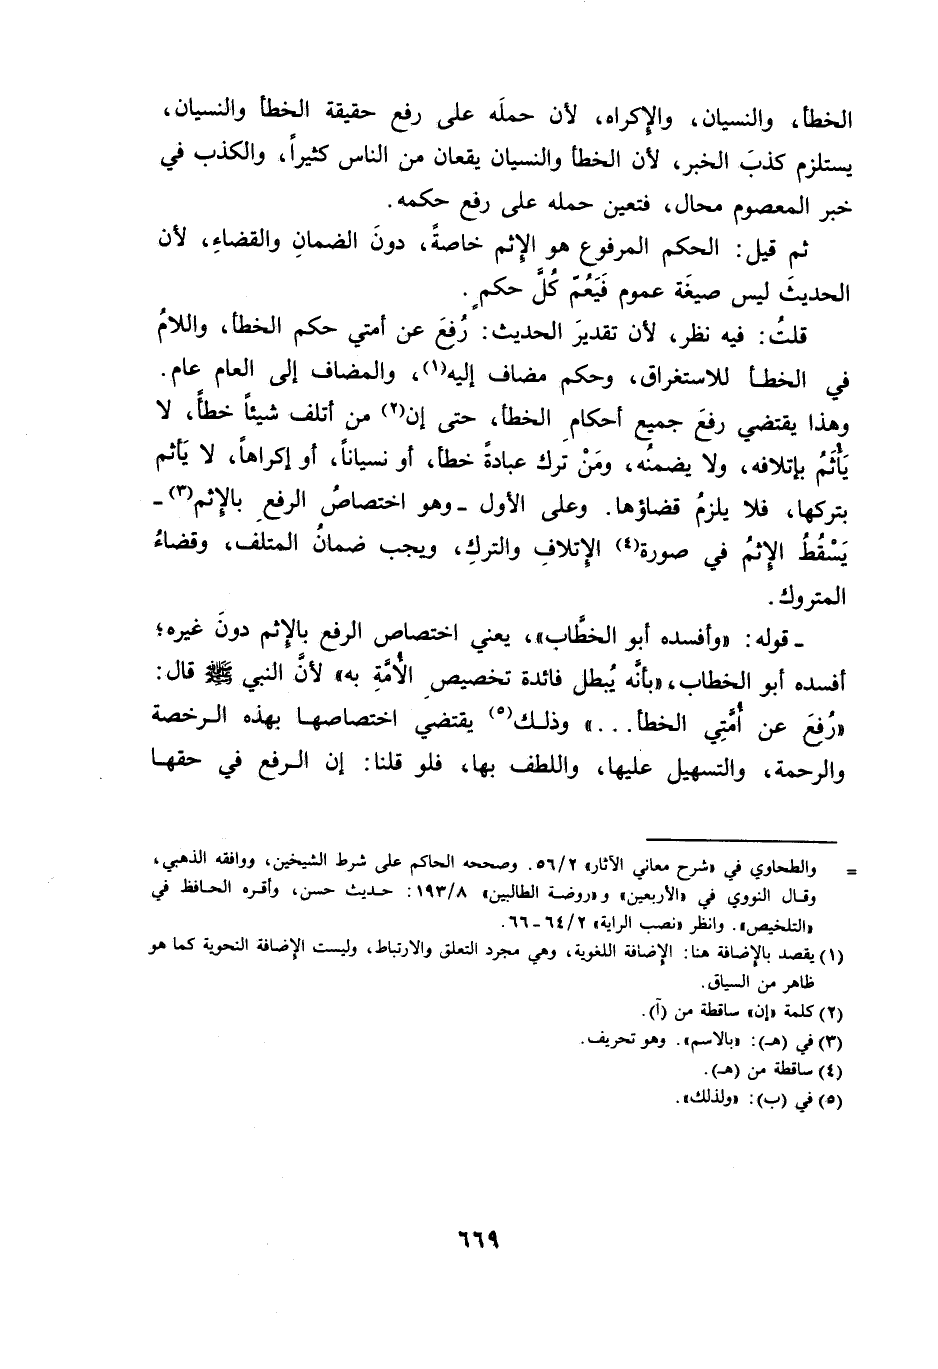 الخطأ، والنسيان، والإكراه، لأن حملَه على رفع حقيقة الخطأ والنسيان،
يستلزم كذبَ الخبر، لأن الخطأ والنسيان يقعان من الناس كثيراً، والكذب في
خبر المعصوم محال، فتعين حمله على رفع حكمه.
ثم قيل: الحكم المرفوع هو الإِثم خاصةً، دونَ الضمانِ والقضاءِ، لأن
الحديثَ ليس صيغَة عموم فَيَعُمّ كُلَّ حكمٍ.
قلتُ: فيه نظر، لأن تقديرَ الحديث: رُفِعَ عن أمتي حكم الخطأ، واللامُ
في الخطأ للاستغراق، وحكم مضاف إليه(١)، والمضاف إلى العام عام.
وهذا يقتضي رفعَ جميع أحكامِ الخطأ، حتى إن(٢) من أتلف شيئاً خطأً، لا
يَأْثَمُ بإتلافه، ولا يضمنُه، ومَنْ تركَ عبادةً خطأ، أو نسياناً، أو إكراهاً، لا يَأثم
بتركها، فلا يلزمُ قضاؤها. وعلى الأول ـ وهو اختصاصُ الرفعِ بالإِثم(٣) ـ
يَسْقُطُ الإِثمُ في صورة(٤) الإتلافِ والتركِ، ويجب ضمانُ المتلف، وقضاءُ
المتروك.
ـ قوله: «وأفسده أبو الخطَّاب»، يعني اختصاص الرفع بالإِثم دونَ غيره؛
أفسده أبو الخطاب، «بأنَّه يُبطل فائدة تخصيصِ الأُمَّةِ به» لأنَّ النبي ﷺ قال:
«رُفِعَ عن أُمَّتِي الخطأ...» وذلك(٥) يقتضي اختصاصها بهذه الرخصة
والرحمة، والتسهيل عليها، واللطف بها، فلو قلنا: إن الرفع في حقها
= والطحاوي في «شرح معاني الآثار» ٥٦/٢. وصححه الحاكم على شرط الشيخين، ووافقه الذهبي،
وقال النووي في «الأربعين» و«روضة الطالبين» ١٩٣/٨: حديث حسن، وأقره الحافظ في
«التلخيص». وانظر «نصب الراية» ٦٤/٢ـ٦٦.
(١) يقصد بالإضافة هنا: الإضافة اللغوية، وهي مجرد التعلق والارتباط، وليست الإضافة النحوية كما هو
ظاهر من السياق.
(٢) كلمة «إن» ساقطة من (آ).
(٣) في (هـ): «بالاسم». وهو تحريف.
(٤) ساقطة من (هـ).
(٥) في (ب): «ولذلك».
٦٦٩